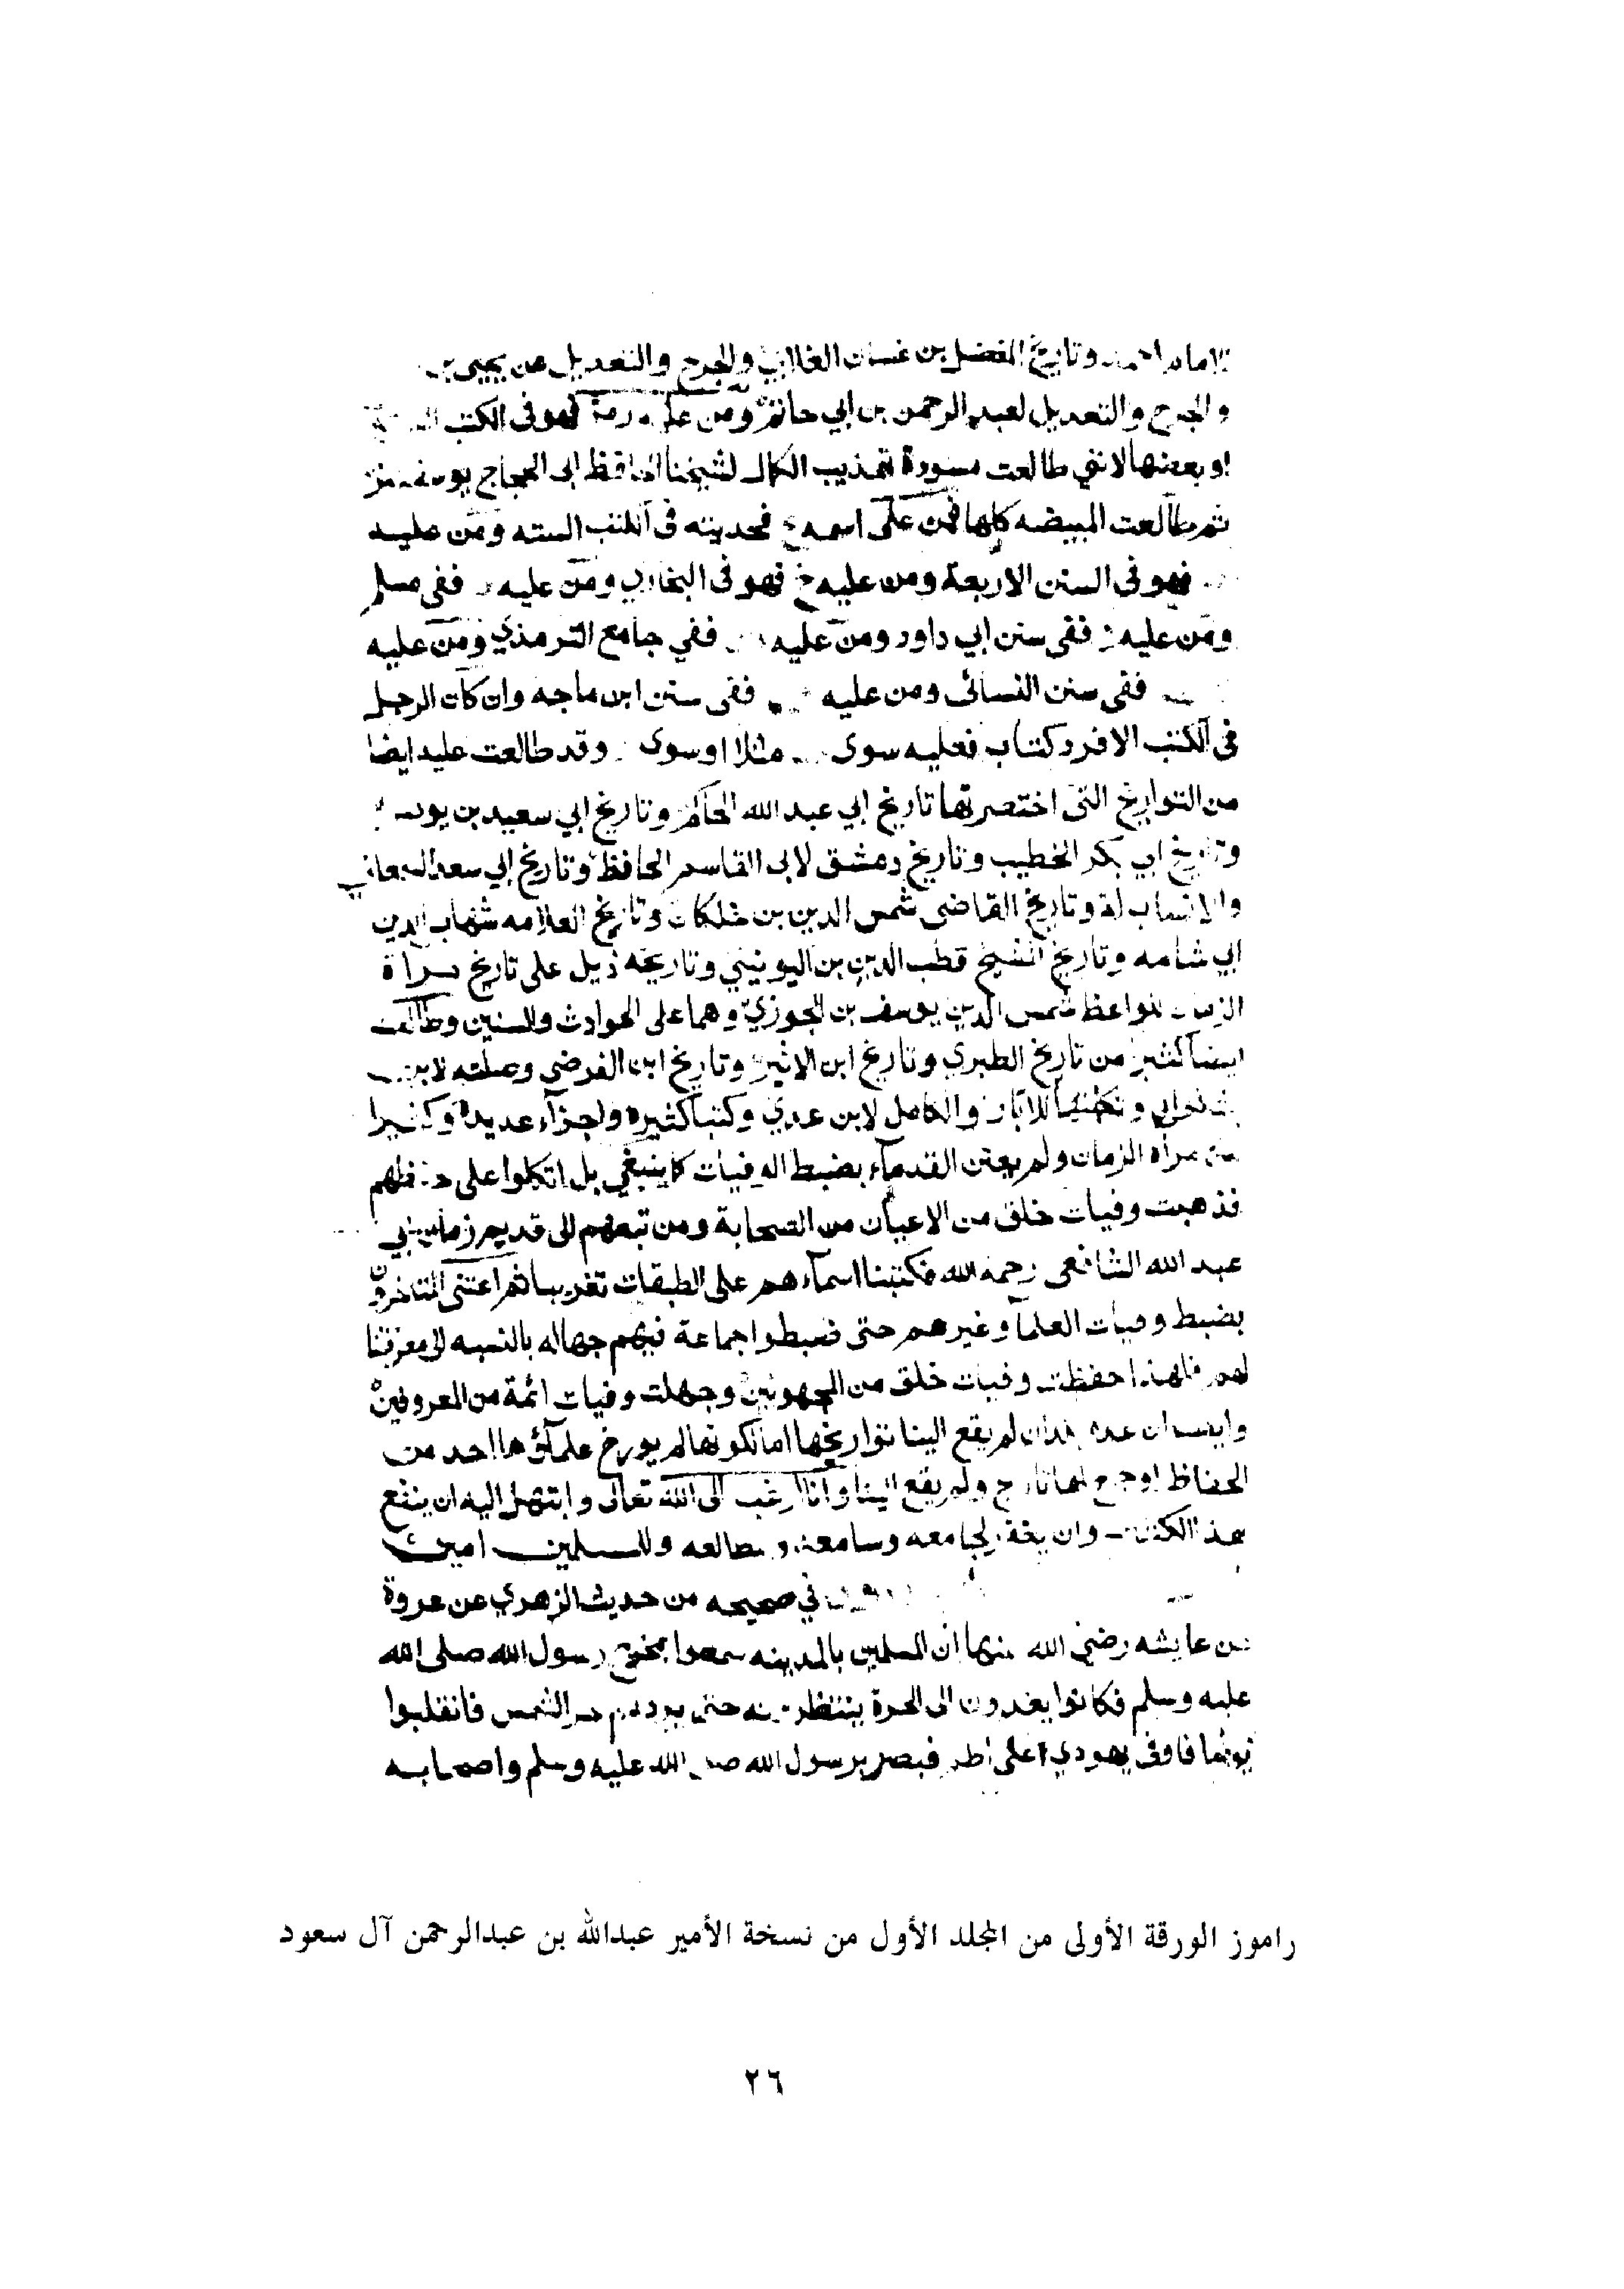 وتاريخ المفضل بن غسان الغلابي والجرح والتعديل عن يحيى بن
والجرح والتعديل لعبد الرحمن بن ابي حاتم ومن عليه رمز فهو في الكتب
او بعضها لانني طالعت مسودة تهذيب الكمال لشيخنا الحافظ ابي الحجاج يوسف
ثم طالعت المبيضه كلها فمن على اسمه ع فحديثه في الكتب السته ومن عليه
فهو في السنن الاربعة ومن عليه خ فهو في البخاري ومن عليه ففي مسلم
ومن عليه د ففي سنن ابي داود ومن عليه ففي جامع الترمذي ومن عليه
ففي سنن النسائي ومن عليه ففي سنن ابن ماجه وان كان الرجل
في الكتب الا فرد كتاب فعليه سوى مثلا او سوى وقد طالعت عليه ايضا
من التواريخ التي اختصرتها تاريخ ابي عبد الله الحاكم وتاريخ ابي سعيد بن يونس
وتاريخ ابي بكر الخطيب وتاريخ دمشق لابي القاسم الحافظ وتاريخ ابي سعد السمعاني
والانساب له وتاريخ القاضي شمس الدين بن خلكان وتاريخ العلامه شهاب الدين
ابي شامه وتاريخ الشيخ قطب الدين بن اليونيني وتاريخه ذيل على تاريخ مراة
الزمان للواعظ شمس الدين يوسف بن الجوزي وهما على الحوادث والسنين وطالعت
ايضا كثيرا من تاريخ الطبري وتاريخ ابن الاثير وتاريخ ابن الفرضي وصلته لابن
بشكوال وتكملتها للابار والكامل لابن عدي وكتبا كثيره واجزاء عديده وكثيرا
من مراه الزمان ولم يعتن القدماء بضبط الوفيات كما ينبغي بل اتكلوا على حفظهم
فذهبت وفيات خلق من الاعيان من الصحابة ومن تبعهم الى قديم زمان ابي
عبد الله الشافعي رحمه الله فكتبنا اسماءهم على الطبقات تقريبا ثم اعتنى المتاخرون
بضبط وفيات العلما وغيرهم حتى ضبطوا جماعة فيهم جهاله بالنسبه الى معرفتنا
لهم فلهذا حفظت وفيات خلق من المجهولين وجهلت وفيات ائمة من المعروفين
وايضا فان عده بلدان لم يقع الينا تواريخها اما لكونها لم يورخ علماؤها احد من
الحفاظ او جمع لها تاريخ ولم يقع الينا وانا ارغب الى الله تعالى وابتهل اليه ان ينفع
بهذا الكتاب وان يغفر لجامعه وسامعه ومطالعه وللمسلمين امين
في صحيحه من حديث الزهري عن عروة
عن عايشه رضي الله عنها ان المسلمين بالمدينه سمعوا بمخرج رسول الله صلى الله
عليه وسلم فكانوا يغدون الى الحرة ينتظرونه حتى يردهم حر الشمس فانقلبوا
يوما فاوفى يهودي على اطم فبصر برسول الله صلى الله عليه وسلم واصحابه
راموز الورقة الأولى من المجلد الأول من نسخة الأمير عبدالله بن عبدالرحمن آل سعود
٢٦